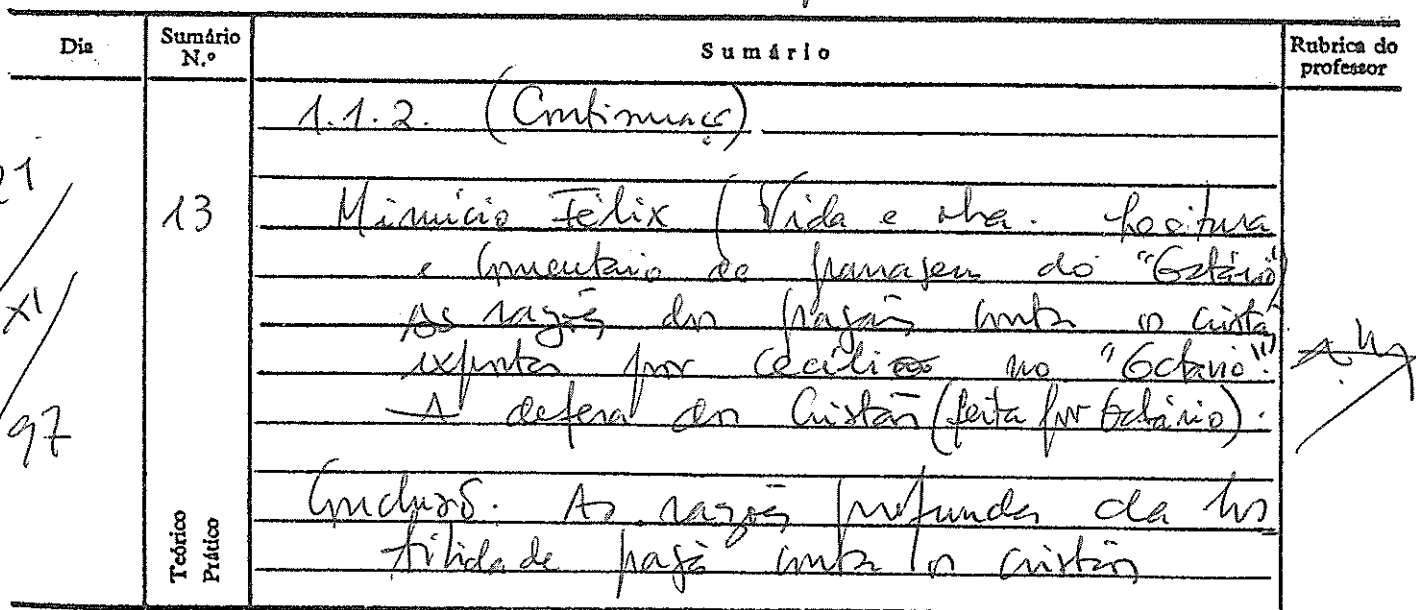 Dia
Sumário N.º
Sumário
Rubrica do professor
1.1.2. (Continuaç)
21/XI/97
13
Minucio Félix (Vida e obra. Leitura
e Comentário de passagem do "Octávio"
As razões dos pagãos contra os cristãos
expostas por Cecílio no "Octavio".
A defesa dos Cristãos (feita por Octávio).
Teórico
Prático
Conclusão. As razões profundas da hos
tilidade pagã contra os cristãos